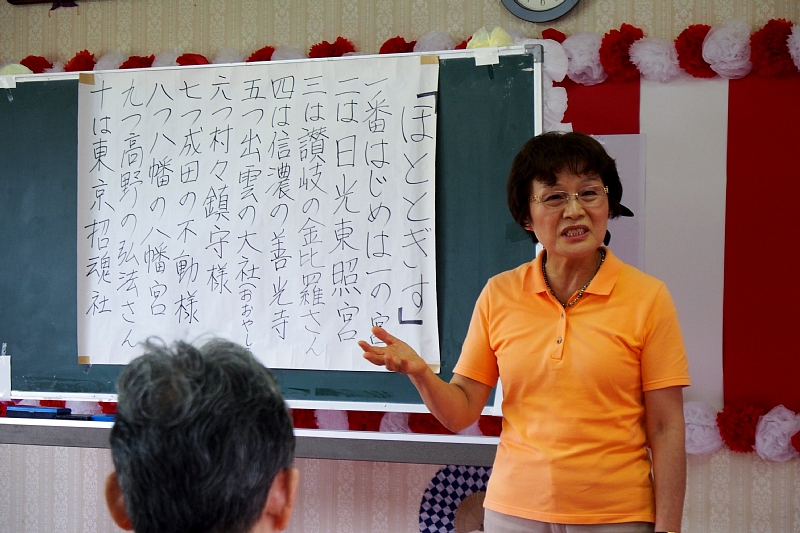 「ほととぎす」
一番はじめは一の宮
二は日光東照宮
三は讃岐の金比羅さん
四は信濃の善光寺
五つ出雲の大社(おおやし
六つ村々鎮守様
七つ成田の不動様
八つ八幡の八幡宮
九つ高野の弘法さん
十は東京招魂社